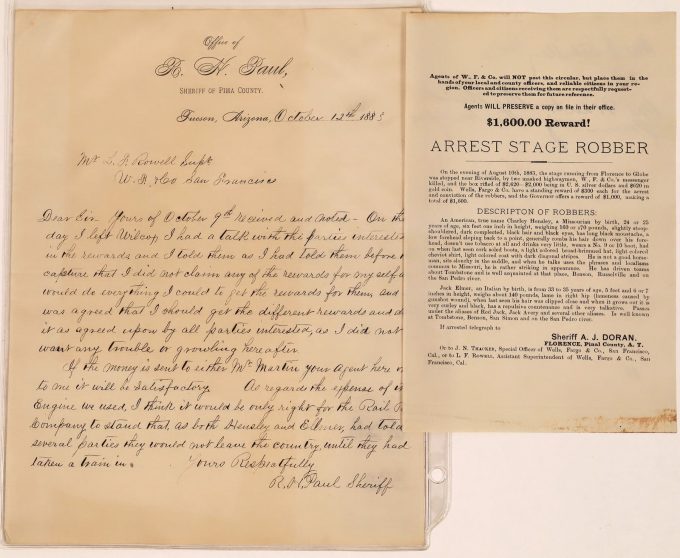 Office of
R. H. Paul,
SHERIFF OF PIMA COUNTY.
Tucson, Arizona, October 12th 1883
Mr L. F. Rowell Supt
W. F. & Co San Francisco
Dear Sir Yours of October 9th received and noted – On the
day I left Wilcox I had a talk with the parties interested
in the rewards and I told them as I had told them before the
capture that I did not claim any of the rewards for my self a
would do everything I could to get the rewards for them, and
was agreed that I should get the different rewards and d
it as agreed upon by all parties interested, as I did not
want any trouble or growling hereafter
If the money is sent to either Mr Martin your Agent here o
to me it will be satisfactory. As regards the expense of
Engine we used, I think it would be only right for the Rail R
Company to stand that, as both Hensley and Elmer, had told
several parties they would not leave the country, until they had
taken a train in.
Yours Respectfully
R. H. Paul Sheriff
Agents of W., F. & Co. will NOT post this circular, but place them in the
hands of your local and county officers, and reliable citizens in your re-
gion. Officers and citizens receiving them are respectfully request-
ed to preserve them for future reference.
Agents WILL PRESERVE a copy on file in their office.
$1,600.00 Reward!
ARREST STAGE ROBBER
On the evening of August 10th, 1883, the stage running from Florence to Globe
was stopped near Riverside, by two masked highwaymen, W., F. & Co.'s messenger
killed, and the box rifled of $2,620—$2,000 being in U. S. silver dollars and $620 in
gold coin. Wells, Fargo & Co. have a standing reward of $300 each for the arrest
and conviction of the robbers, and the Governor offers a reward of $1,000, making a
total of $1,600.
DESCRIPTON OF ROBBERS:
An American, true name Charley Hensley, a Missourian by birth, 24 or 25
years of age, six feet one inch in height, weighing 160 or 170 pounds, slightly stoop-
shouldered, dark complected, black hair and black eyes, has long black moustache, a
low forehead sloping back to a point, generally combs his hair down over his fore-
head, doesn't use tobacco at all and drinks very little, wears a No. 9 or 10 boot, had
on when last seen cork soled boots, a light colored broad-brimmed hat, light colored
cheviot shirt, light colored coat with dark diagonal stripes. He is not a good horse-
man, sits closely in the saddle, and when he talks uses the phrases and localisms
common to Missouri, he is rather striking in appearance. He has driven teams
about Tombstone and is acquainted at that place, Benson, Russelville and on
the San Pedro river.
Jack Elmer, an Italian by birth, is from 33 to 35 years of age, 5 feet and 6 or 7
inches in height, weighs about 140 pounds, lame in right hip (lameness caused by
gunshot wound), when last seen hair was clipped close and when it grows out it is
very curley and oily, has a restless countenance and is very talkative. Passes
under the aliases of Red Jack, Jack Avery and several other aliases. Is well known
at Tombstone, Benson, San Simon and on the San Pedro river.
If arrested telegraph to
Sheriff A. J. DORAN,
FLORENCE, Pinal County, A. T.
Or to J. N. THACKER, Special Officer of Wells, Fargo & Co., San Francisco,
Cal., or to L. F. ROWELL, Assistant Superintendent of Wells, Fargo & Co., San
Francisco, Cal.